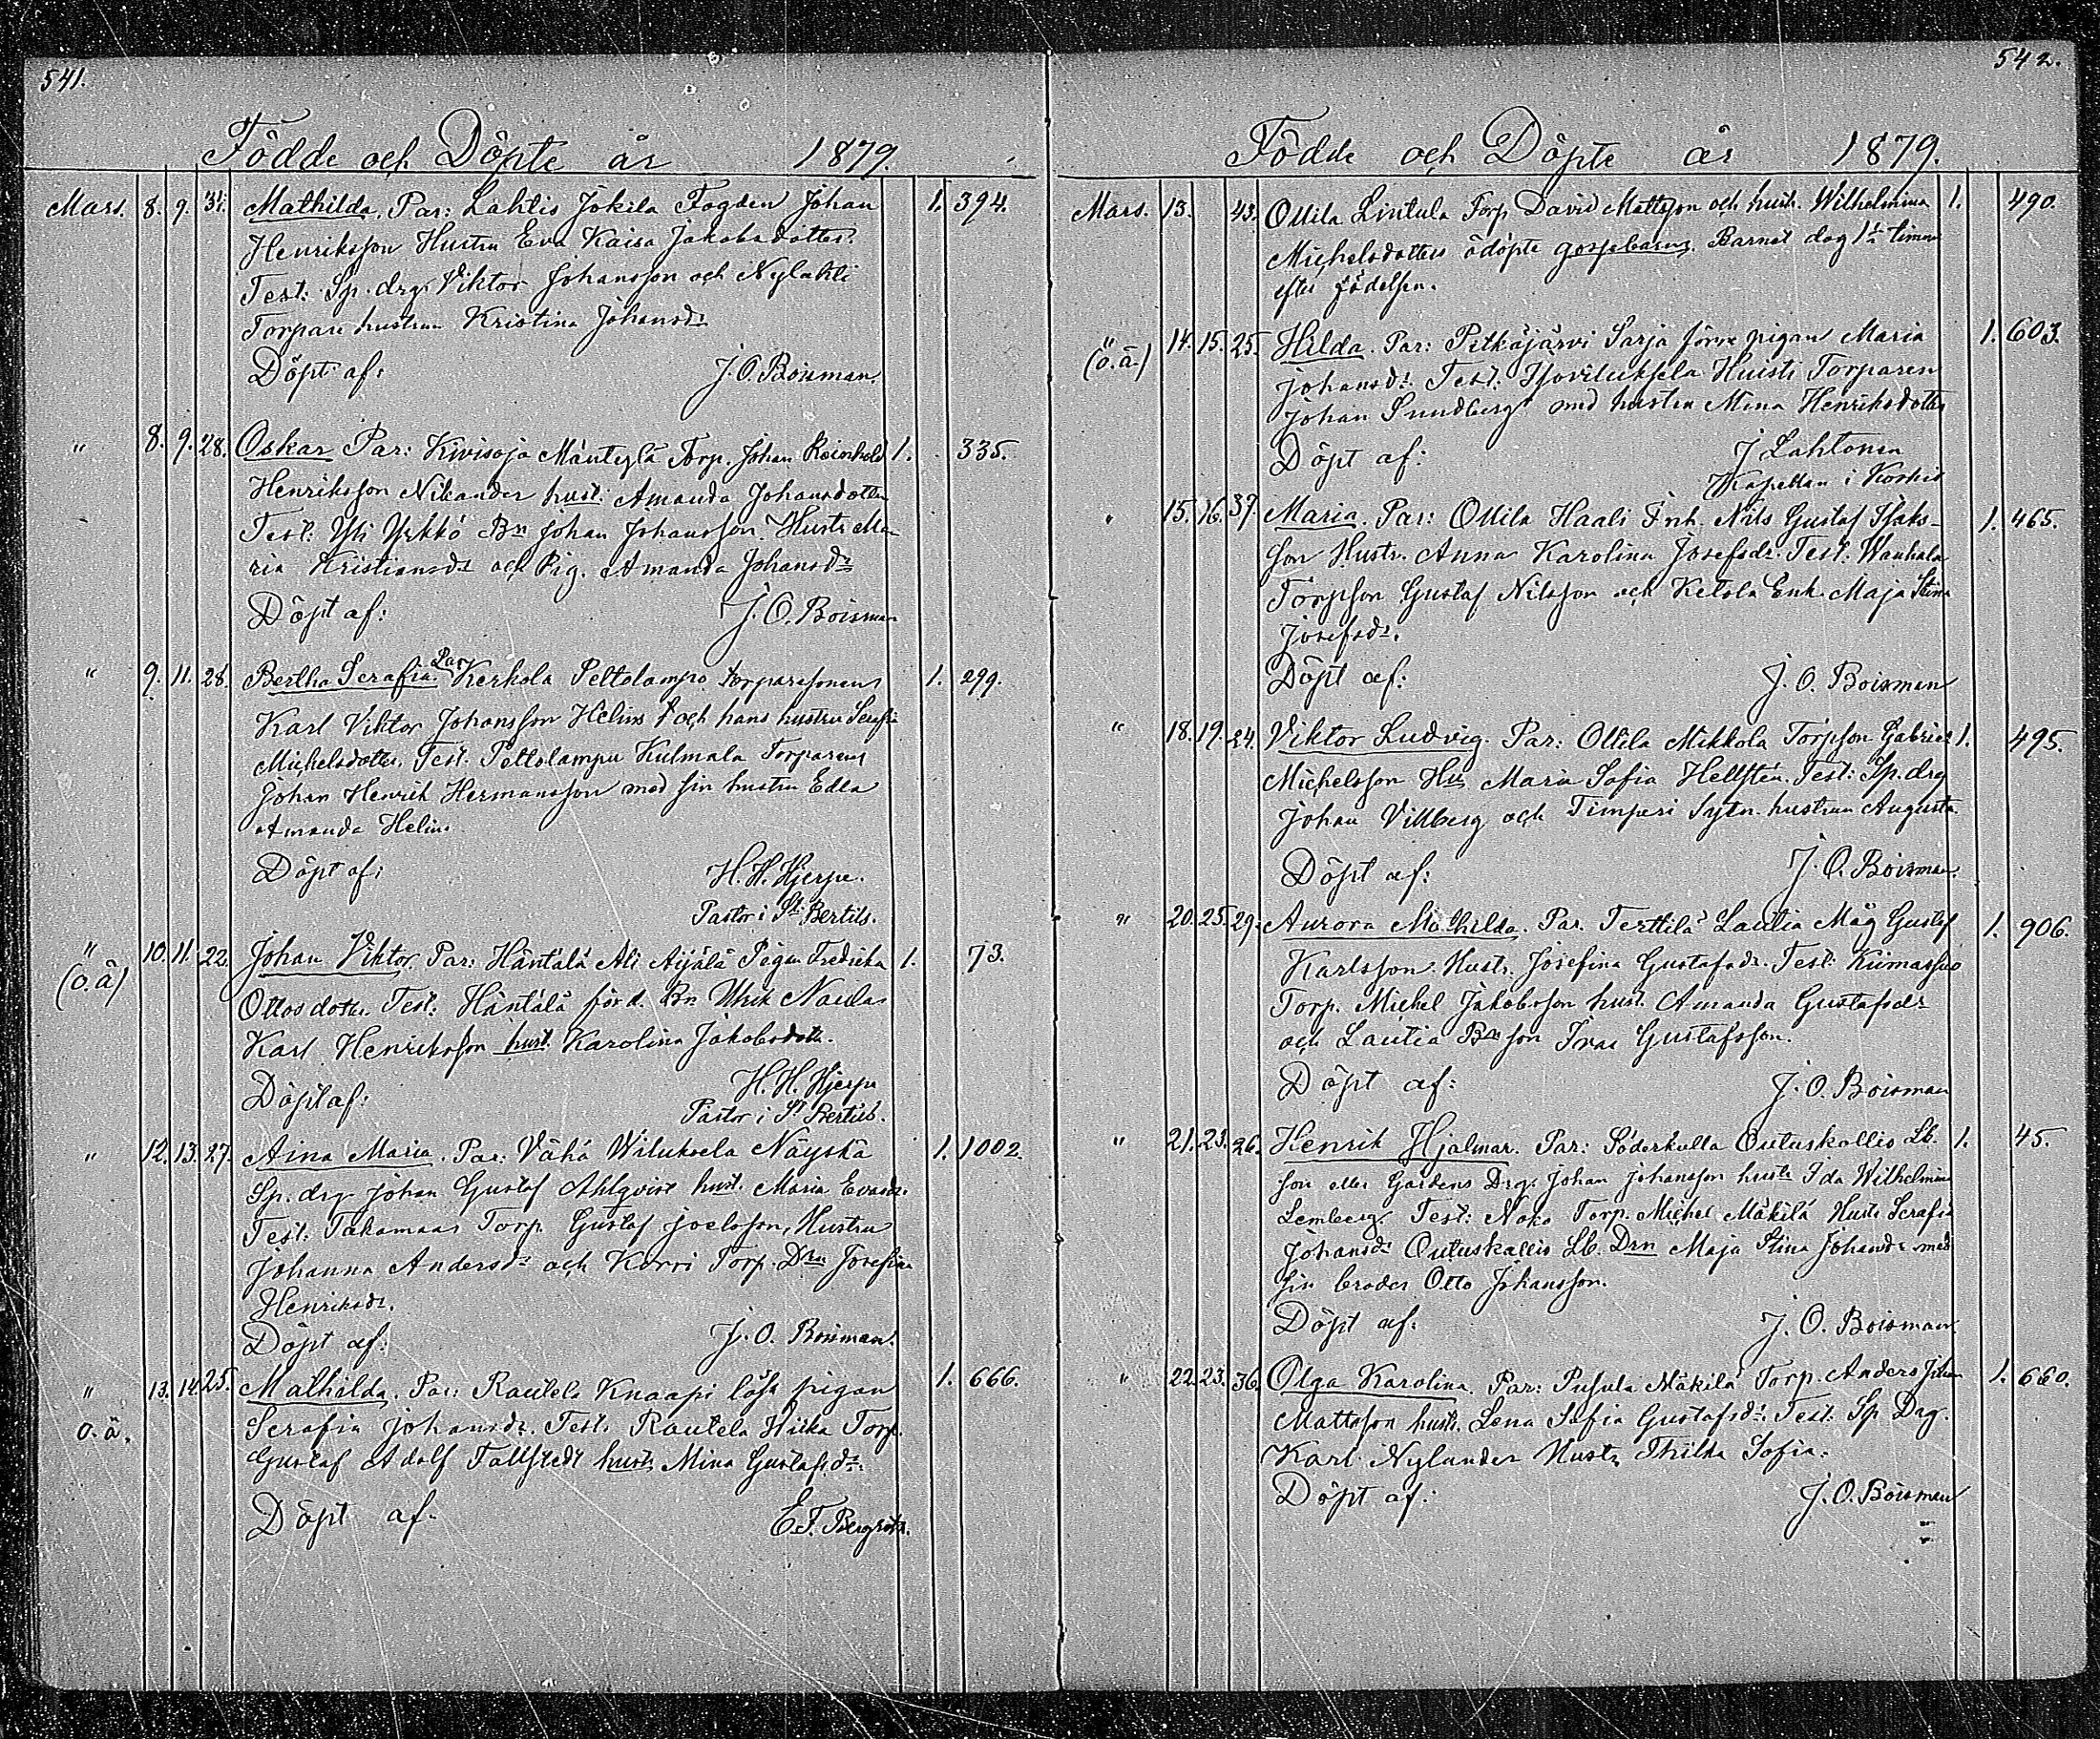 541.
Födde och Döpte år 1879.
Mars. 8. 9. 31. Mathilda. Par: Lahtis Jokila Fogden Johan 1. 394.
Henriksson Hustru Eva Kaisa Jakobsdotter.
Test: Sp. drg. Viktor Johansson och Nylahti
Torpare hustrun Kristina Johansdr
Döpt af: J. O. Boisman.
" 8. 9. 28. Oskar Par: Kivisoja Mäntylä Torp. Johan Reinhold 1. 335.
Henriksson Nikander hust: Amanda Johansdotter
Test: Yli Yrkkö Bn Johan Johansson Hustr Ma-
ria Kristiansdr och Pig. Amanda Johansdr
Döpt af: J. O. Boisman
" 9. 11. 28. Bertha Serafia. Par Kerkola Peltolampo torparesonen 1. 299.
Karl Viktor Johansson Helin och hans hustru Serafia
Michelsdotter. Test. Peltolampu Kulmala Torparen
Johan Henrik Hermansson med sin hustru Edla
Amanda Helin.
Döpt af: H. H. Hjerpe.
Pastor i St. Bertils.
" 10. 11. 22. Johan Viktor. Par: Häntälä Ali Äijälä Pigan Fredrika 1. 73.
(o.ä)
Ottosdotter. Test: Häntälä förd. Bn Naula
Karl Henriksson hust. Karolina Jakobsdotr.
Döpt af: H. H. Hjerpe
Pastor i St Bertils.
" 12. 13. 27. Aina Maria. Par: Vähä Wiluksela Näyskä 1. 1002.
Sp. drg Johan Gustaf Ahlqvist hust. Maria Evasdr.
Test: Takamaas Torp. Gustaf Joelsson, Hustru
Johanna Andersdr och Korri Torp. Drn Josefina
Henriksdr.
Döpt af: J. O. Boisman.
" 13. 14. 25. Mathilda. Par: Rautela Knaapi lösa pigan 1. 666.
o.ä.
Serafia Johansdr. Test. Rautela Torp.
Gustaf Adolf Tallstedt hust Mina Gustafsdr.
Döpt af. E. F. Bergroth.
542.
Födde och Döpte år 1879.
Mars. 13. 43. Ollila Lintula Torp David Mattsson och hustr. Wilhelmina 1. 490.
Michelsdotters odöpte gossebarn. Barnet dog timme
efter födelsen.
" 14. 15. 25. Hilda. Par: Pitkäjärvi Sarja förre pigan Maria 1. 603.
(o.ä.)
Johansdr. Test. Isoviluksela Huisti Torparen
Johan Sundberg med hustru Mina Henriksdotter
Döpt af: J Lahtonen
Kapellan i Koskis
" 15. 16. 37 Maria. Par: Ollila Haali Inh. Nils Gustaf Isaks- 1. 465.
son Hustr. Anna Karolina Josefsdr. Test: Wanhala
Torpson Gustaf Nilsson och Ketola Enk. Maja Stina
Josefsdr.
Döpt af: J. O. Boisman
" 18. 19. 24. Viktor Ludvig. Par: Ollila Mikkola Torpson Gabriel 1. 495.
Michelsson Hu Maria Sofia Hellstén. Test: Sp. drg
Johan Villberg och Timperi Sytn. hustrun Augusta
Döpt af: J. O. Boisman.
" 20. 25. 29. Aurora Mathilda. Par. Terttilä Lautia Måg Gustaf 1. 906.
Karlsson Hustr. Josefina Gustafsdr. Test: Kiimassuo
Torp. Michel Jakobsson hust. Amanda Gustafsdr
och Lautia Bn son Frans Gustafsson.
Döpt af: J. O. Boisman
" 21. 23. 26. Henrik Hjalmar. Par: Söderkulla Outuskallio Lb. 1. 45.
son eller Gårdens Drg. Johan Johansson hustr Ida Wilhelmina
Lemberg. Test: Noko Torp. Michel Mäkilä Hustr Serafia
Johansdr Outuskallio Lb. Drn Maja Stina Johansdr med
sin broder Otto Johansson.
Döpt af: J. O. Boisman.
" 22. 23. 36. Olga Karolina. Par: Pusula Mäkilä Torp. Anders Johan 1. 660.
Mattsson hustr. Lena Sofia Gustafsdr. Test: Sp Drg.
Karl Nylander Hustr Thilda Sofia.
Döpt af: J. O. Boisman